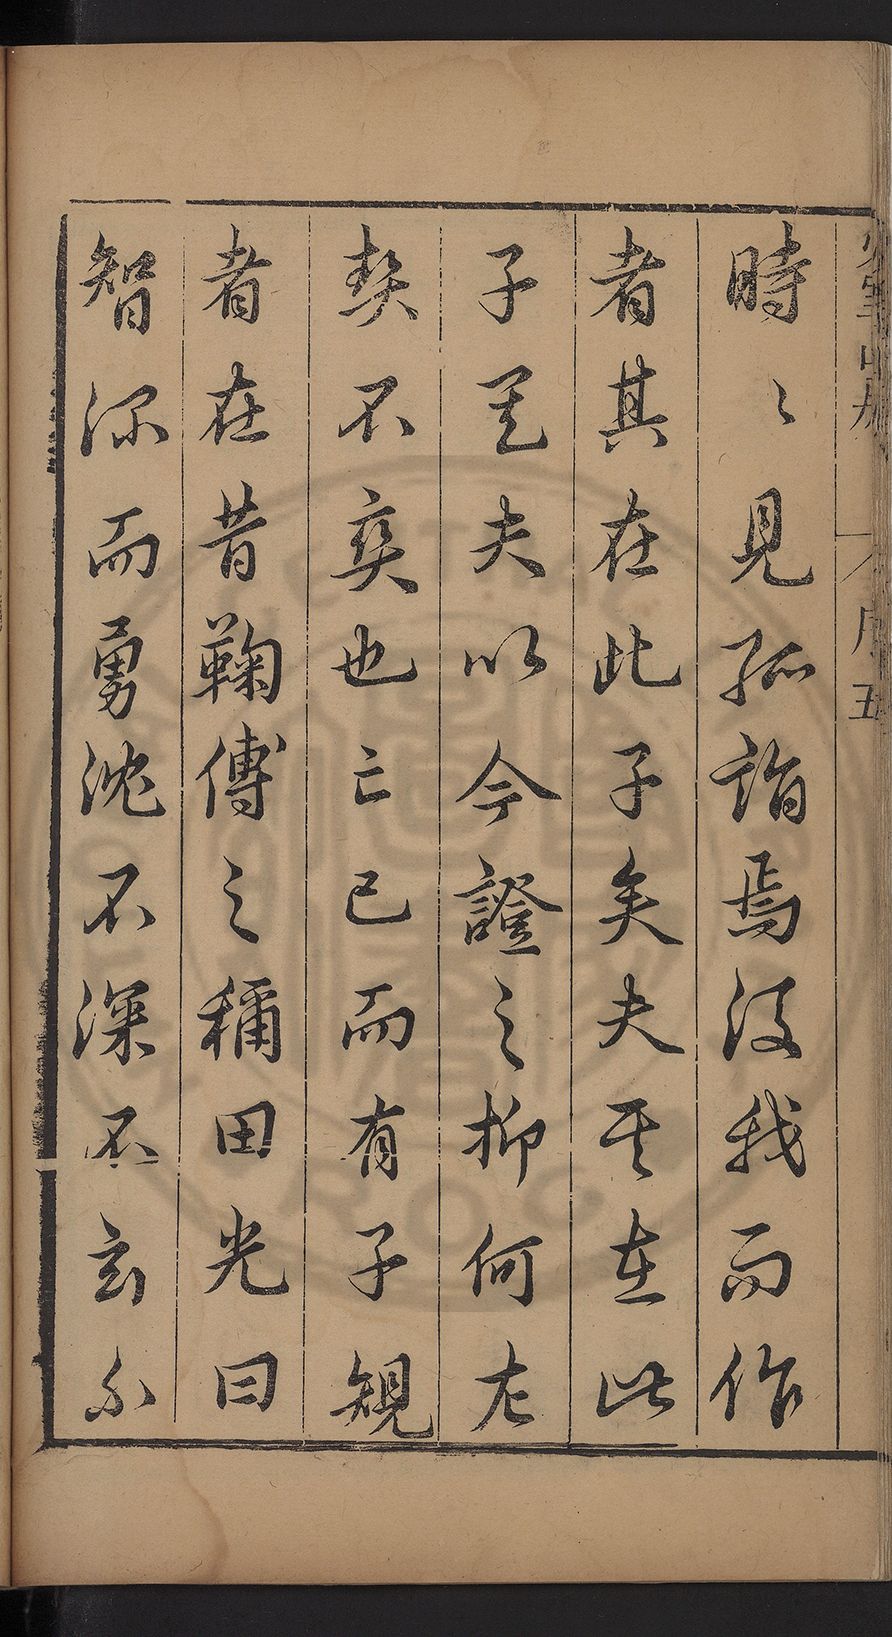 少室山房 序 五
時〻見孤詣焉後我而作
者其在此子矣夫其在此
子矣夫以今證之抑何左
契不爽也亡已而有子規
者在昔鞠傅之稱田光曰
智深而勇沈不深不玄不